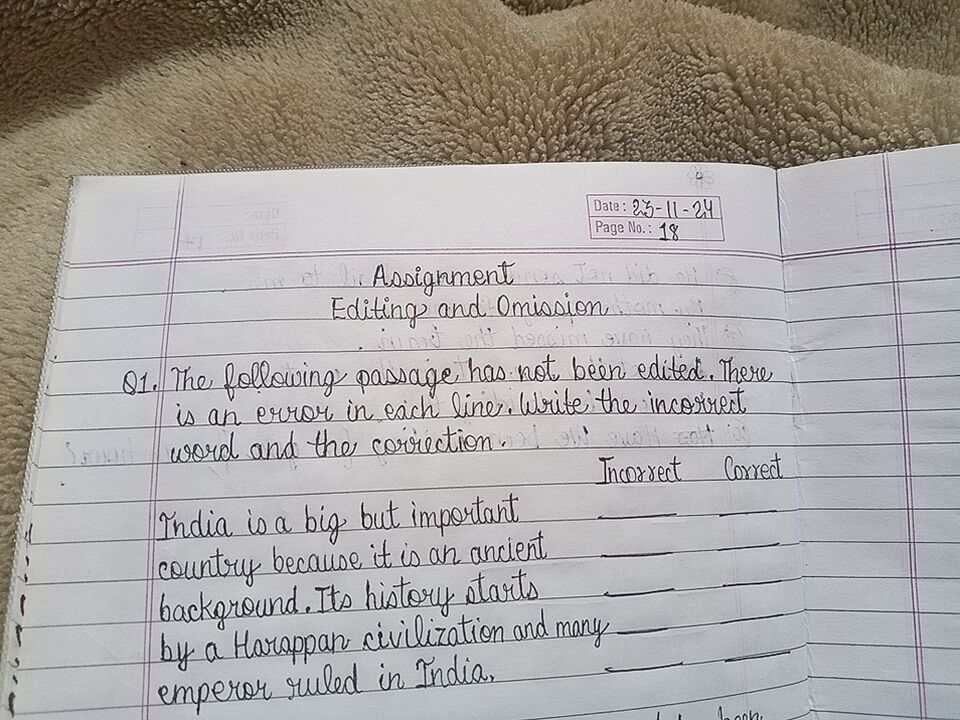 Date: 23-11-24
Page No.: 18
Assignment
Editing and Omission
Q1. The following passage has not been edited. There
is an error in each line. Write the incorrect
word and the correction.
Incorrect Correct
India is a big but important
country because it is an ancient
background. Its history starts
by a Harappan civilization and many
emperor ruled in India.
been